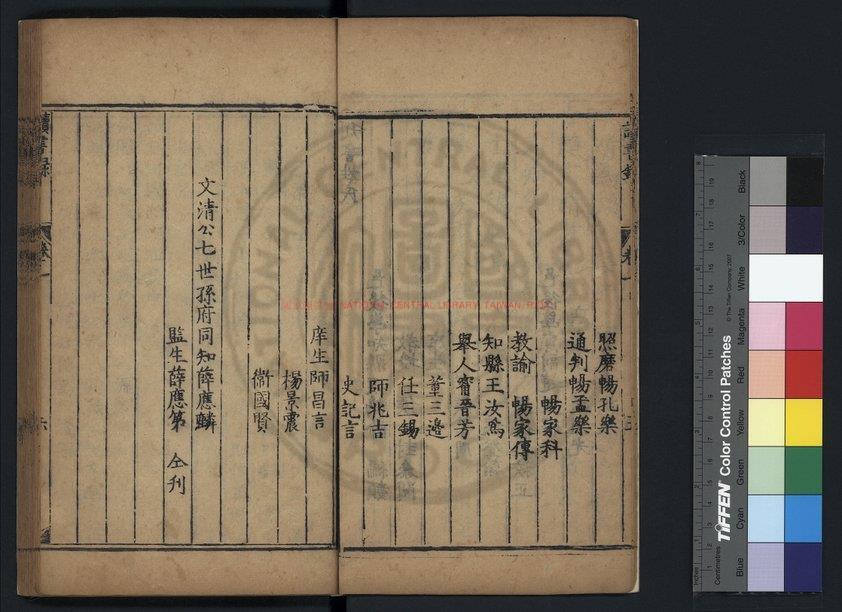 讀書錄
卷一
照磨暢孔樂
通判暢孟樂
暢家科
教諭 暢家傳
知縣王汝爲
舉人甯晉芳
董三邊
任三錫
師兆吉
史記言
庠生師昌言
楊景震
衞國賢
文清公七世孫府同知薛應麟
監生薛應第 仝刋
讀書錄
卷一
六
NATIONAL CENTRAL LIBRARY, TAIWAN, R.O.C
TIFFEN Color Control Patches
© The Tiffen Company, 2007
Inches
Centimetres
Blue
Cyan
Green
Yellow
Red
Magenta
White
3/Color
Black